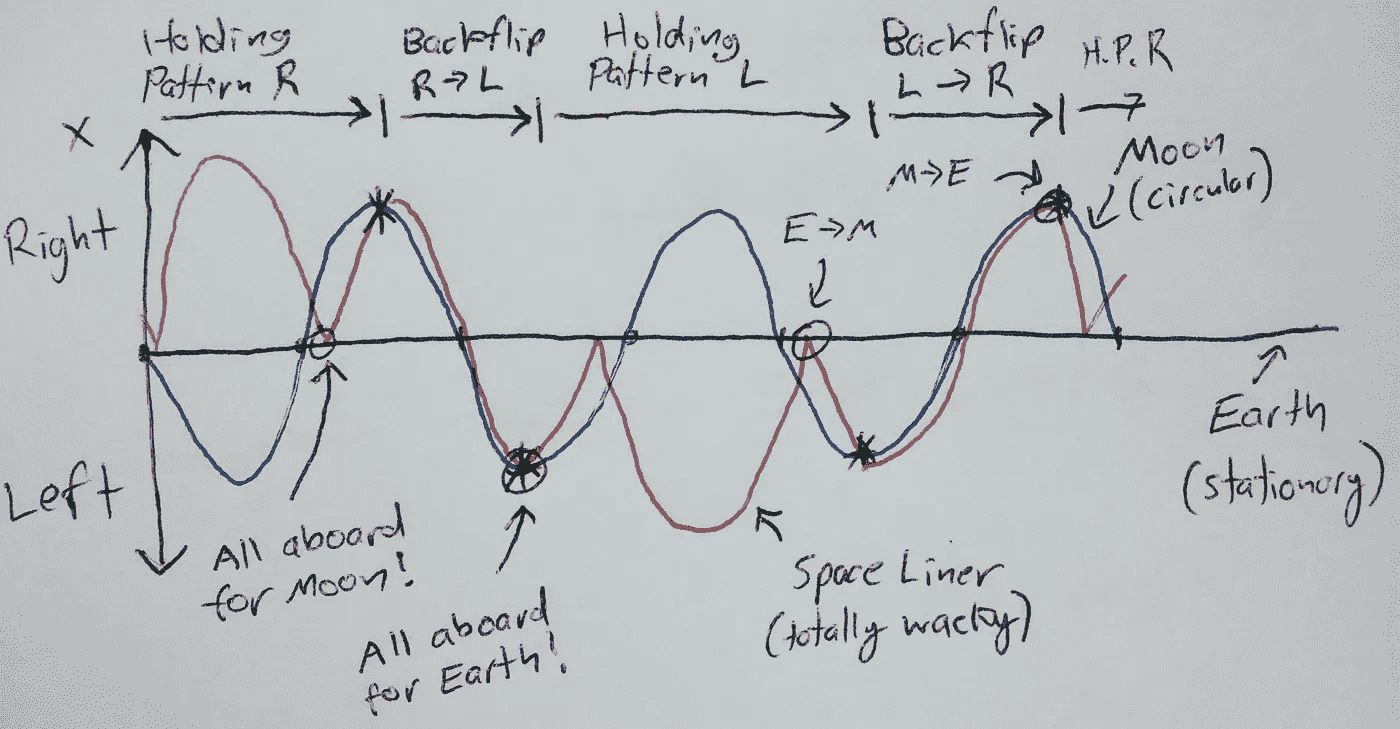 Holding
Pattern R
Backflip
R→L
Holding
Pattern L
Backflip
L→R
H.P.R
X
Right
Left
M→E
Moon
(circular)
E→M
Earth
(stationary)
All aboard
for Moon!
All aboard
for Earth!
Space Liner
(totally wacky)